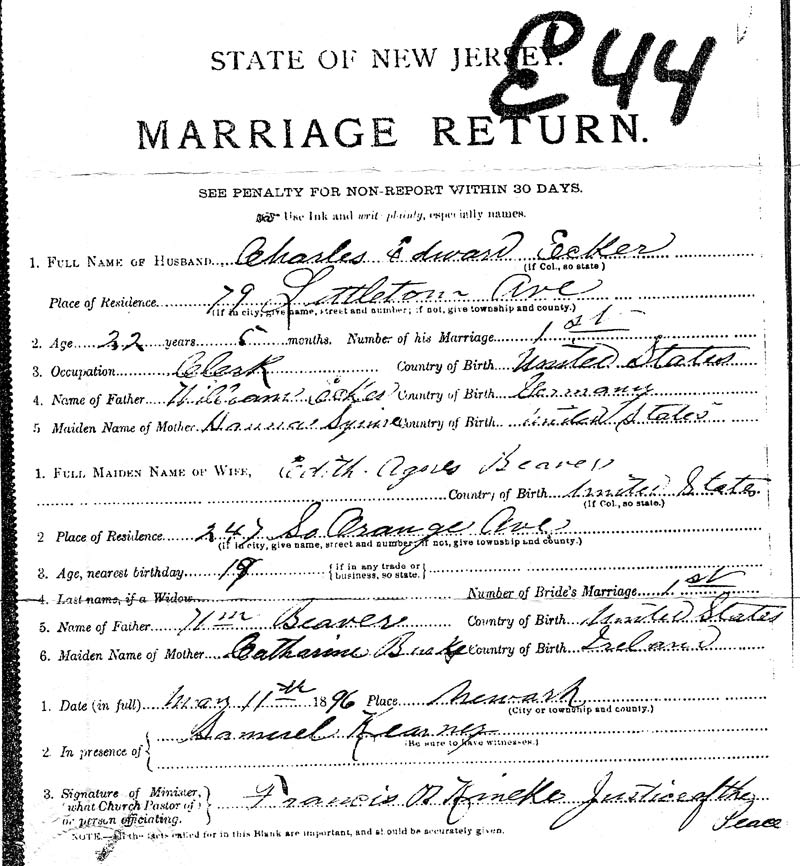 E 44
STATE OF NEW JERSEY.
MARRIAGE RETURN.
SEE PENALTY FOR NON-REPORT WITHIN 30 DAYS.
Use Ink and writ plainly, especially names.
1. FULL NAME OF HUSBAND, Charles Edward Ecker
(If Col., so state)
Place of Residence 79 Littleton Ave
(If in city, give name, street and number; if not, give township and county.)
2. Age 22 years 5 months. Number of his Marriage 1st
3. Occupation Clerk Country of Birth United States
4. Name of Father William Ecker Country of Birth Germany
5 Maiden Name of Mother Squire Country of Birth United States
1. FULL MAIDEN NAME OF WIFE, Edith Agnes Beaver
Country of Birth United States
(If Col., so state.)
2 Place of Residence 247 So Orange Ave
(If in city, give name, street and number; if not, give township and county.)
3. Age, nearest birthday 19 {if in any trade or business, so state.}
4. Last name, if a Widow Number of Bride's Marriage 1st
5. Name of Father Wm Beaver Country of Birth United States
6. Maiden Name of Mother Catharine Burke Country of Birth Ireland
1. Date (in full) May 11th 1896 Place Newark
(City or township and county.)
2. In presence of { Samuel Kearney
(Be sure to have witnesses.)
3. Signature of Minister,
what Church Pastor of, Francis Justice of the
or person officiating. Peace
NOTE.—All the facts called for in this Blank are important, and should be accurately given.